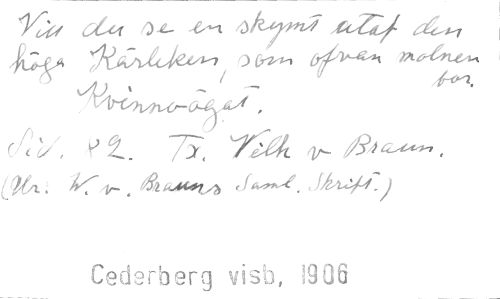 Vill du se en skymt utaf den
höga Kärleken, som ofvan molnen
bor.
Kvinnoögat.
Sid. 82. Tx. Vilh v Braun.
(Ur: W. v. Brauns Saml. Skrift.)
Cederberg visb, 1906